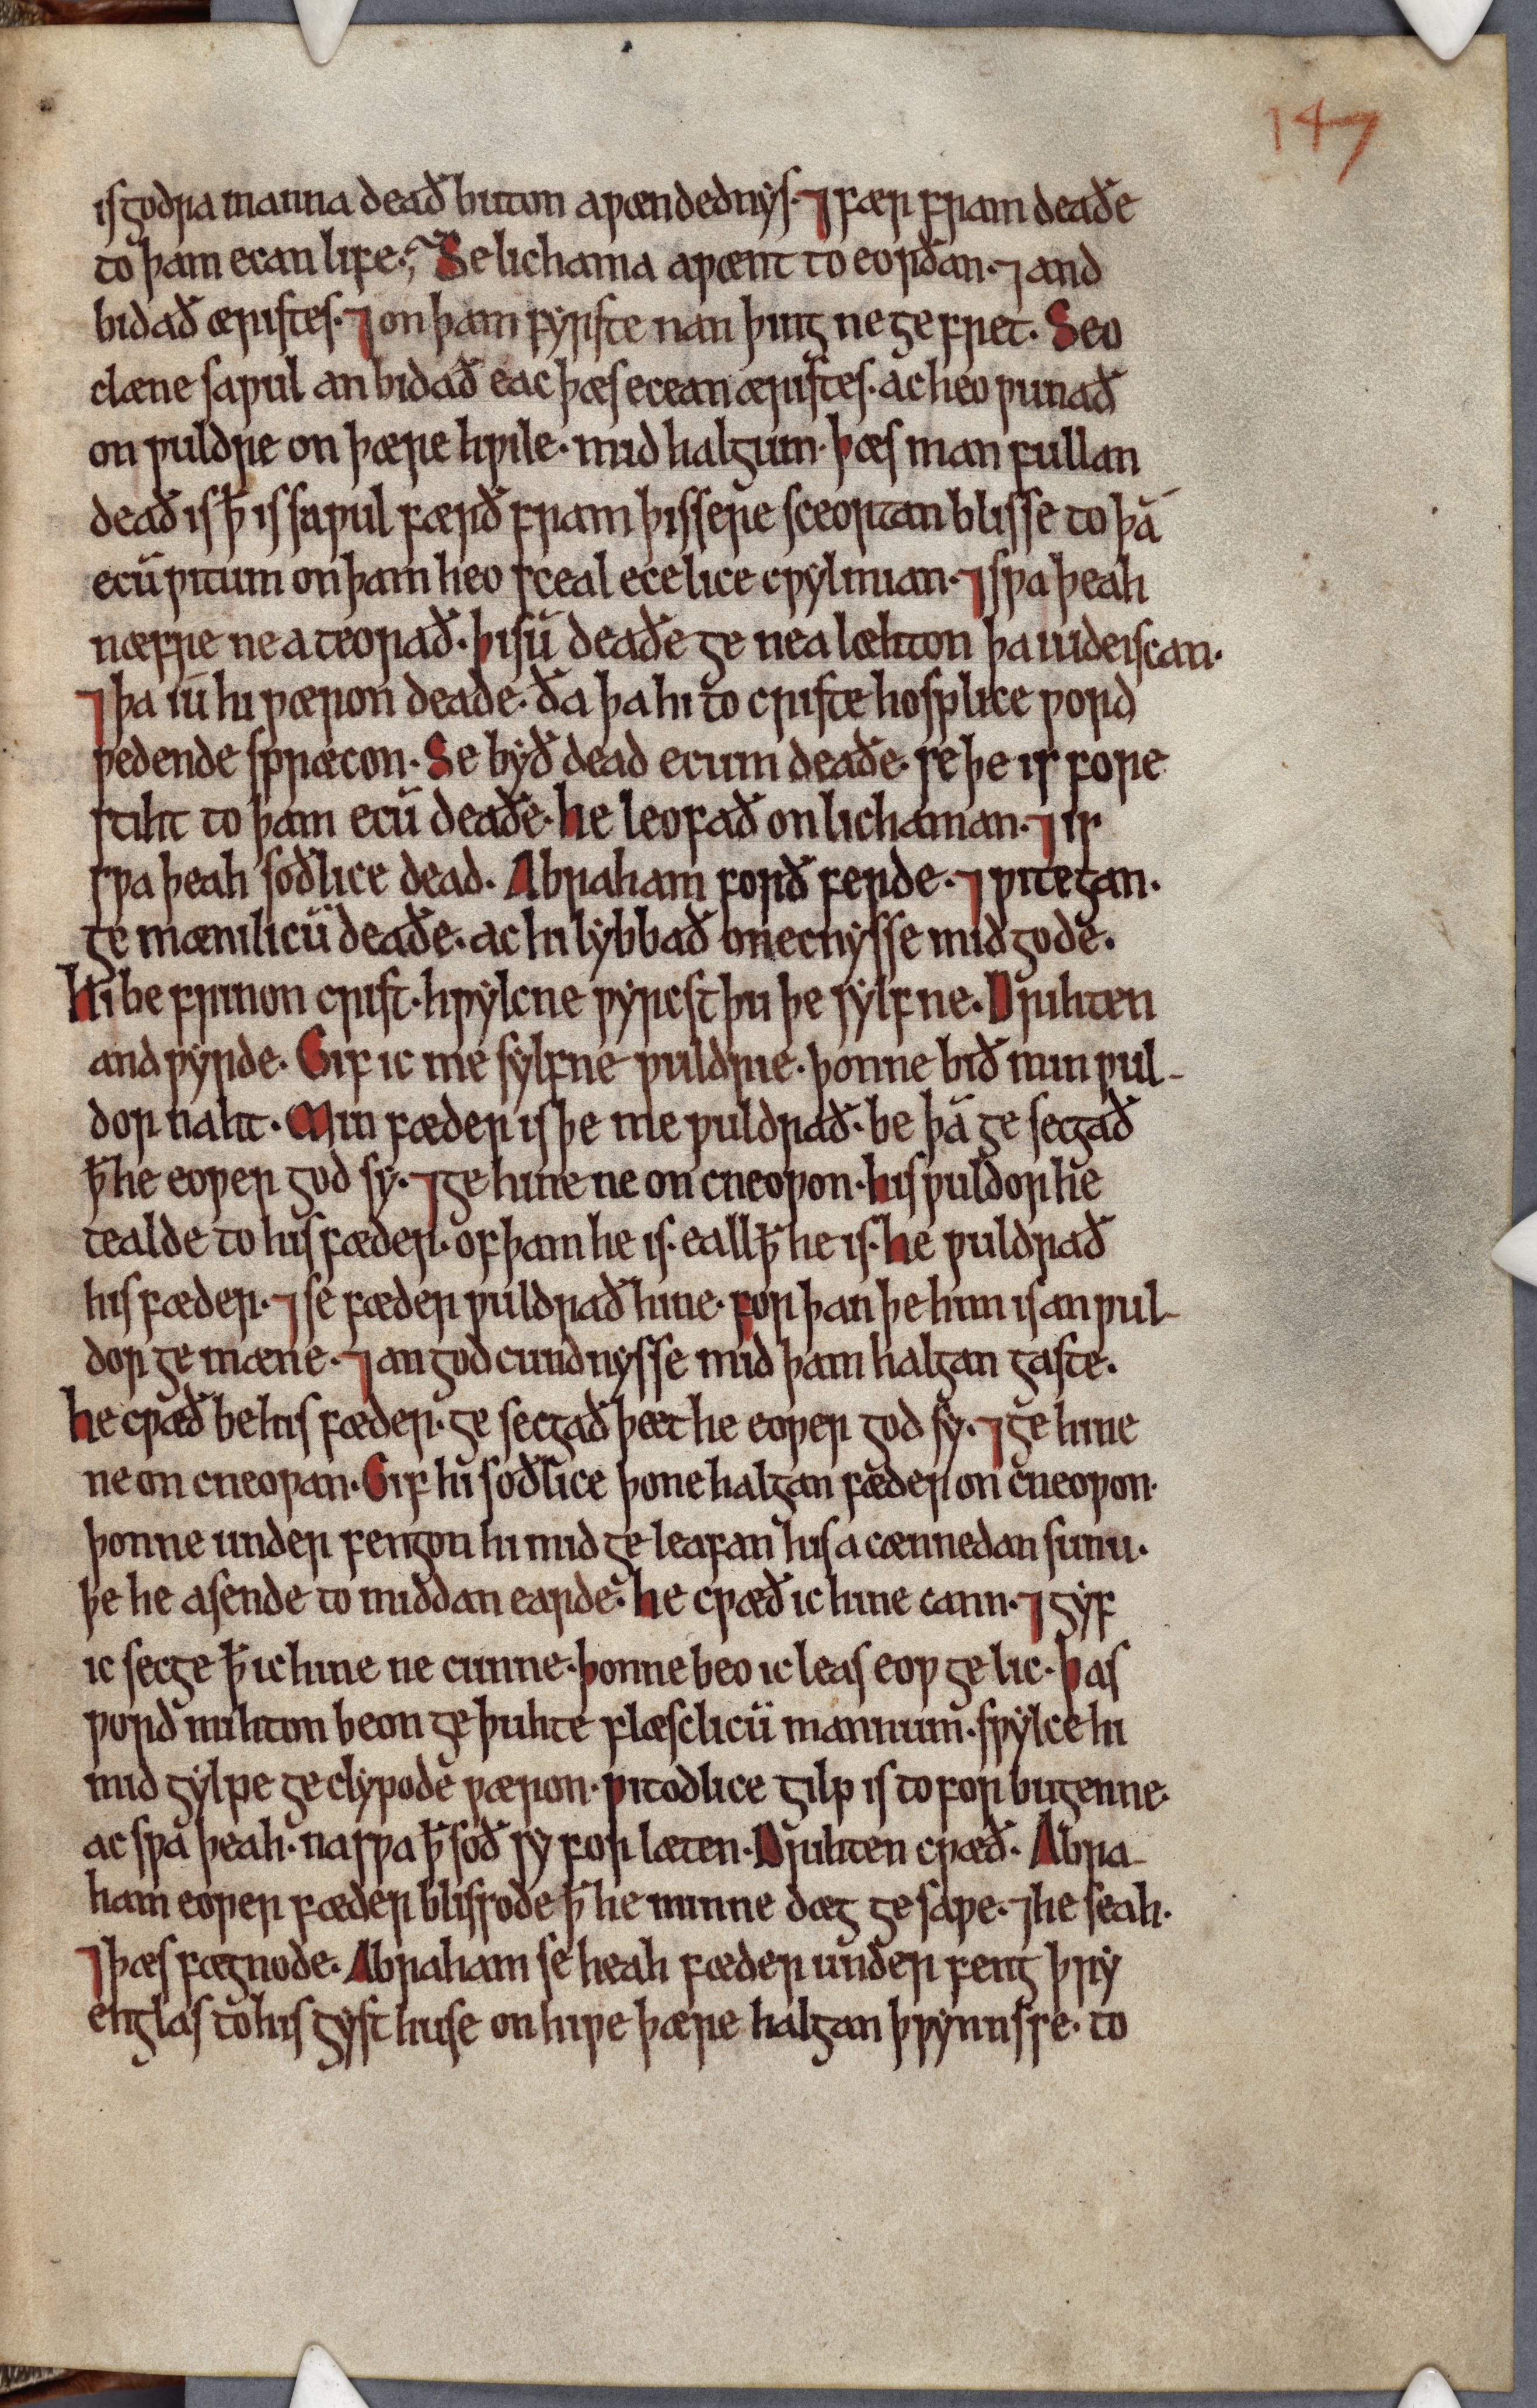 147
is godra manna deað buton aƿændednys. ⁊ fær fram deaðe
to þam ecan life; Se lichama aƿænt to eorðan. ⁊ and
bidað æristes. ⁊ on þam fyrste nan þing ne ge fret. Seo
clæne saƿul an bidað eac þæs ecean æristes. ac heo ƿunað
on ƿuldre on þære hƿile. mid halgum. þæs man fullan
deað is ꝥ is saƿul færð fram þissere sceortan blisse to þā
ecū ƿitum on þam heo sceal ecelice cƿylmian. ⁊ sƿa þeah
næfre ne ateorað. þisū deaðe ge nealæhton þa iudeiscan.
⁊ þa iū hi ƿæron deade. ða þa hi to criste hosplice ƿord
ƿedende spræcon. Se byð dead ecum deaðe. se þe is fore
stiht to þam ecū deaðe. he leofað on lichaman. ⁊ is
sƿa þeah soðlice dead. Abraham forð ferde. ⁊ ƿitegan.
ge mænilicū deaðe. ac hi lybbað on ecnysse mid gode.
Hi be frinon crist. hƿylcne ƿyrcst þu þe sylfne. Drihten
andƿyrde. Gif ic me sylfne ƿuldrie. þonne bið min ƿul-
dor naht. Min fæder is þe me ƿuldrað. be þā ge secgað
ꝥ he eoƿer god sy. ⁊ ge hine ne on cneoƿon. his ƿuldor he
tealde to his fæder. of þam he is. eall ꝥ he is. he ƿuldrað
his fæder. ⁊ se fæder ƿuldrað hine. for þan þe him is an ƿul-
dor ge mæne. ⁊ an god cundnysse mid þam halgan gaste.
he cƿæð be his fæder. ge secgað þæt he eoƿer god sy. ⁊ ge hine
ne on cneoƿan. Gif hi soðlice þone halgan fæder on cneoƿon.
þonne under fengon hi mid ge leafan his acænnedan sunu.
þe he asende to middan earde. he cƿæð ic hine cann. ⁊ gyf
ic secge ꝥ ic hine ne cunne. þonne beo ic leas eoƿ ge lic. þas
ƿord mihton beon ge þuhte flæsclicū mannum. sƿylce hi
mid gylpe ge clypode ƿæron. ƿitodlice gilp is to for bugenne.
ac sƿa þeah. na sƿa ꝥ soð sy for læten. Drihten cƿæð. Abra-
ham eoƿer fæder blissode ꝥ he minne dæg ge saƿe. ⁊ he seah.
⁊ þæs fægnode. Abraham se heah fæder under feng þry
englas to his gyst huse on hiƿe þære halgan þrynnisse. to